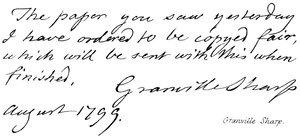 The paper you saw yesterday
I have ordered to be copyed fair,
which will be sent with this when
finished.
Granville Sharp
August 1799.
Granville Sharp.